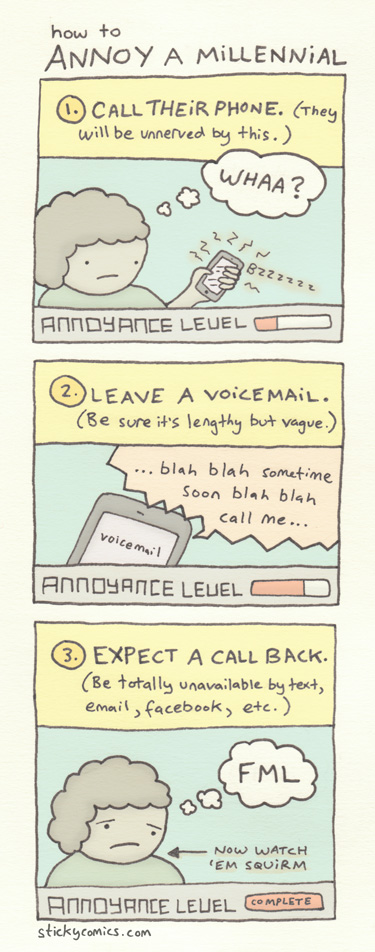 how to
ANNOY A MiLLENNiAL
1. CALL THEiR PHONE. (They
will be unnerved by this.)
WHAA?
BZZZZZZZ
ANNOYANCE LEVEL
2. LEAVE A VOiCEMAiL.
(Be sure it's lengthy but vague.)
... blah blah sometime
soon blah blah
call me...
voicemail
ANNOYANCE LEVEL
3. EXPECT A CALL BACK.
(Be totally unavailable by text,
email, facebook, etc.)
FML
NOW WATCH
'EM SQUiRM
ANNOYANCE LEVEL COMPLETE
stickycomics.com